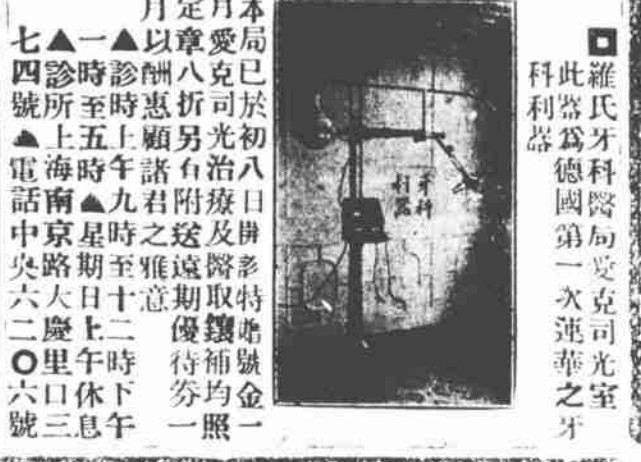 羅氏牙科醫局愛克司光室
此器爲德國第一次運華之牙
科利器
牙科
利器
本局已於初八日開診特贈號金一
月愛克司光治療及醫取鑲補均照
定章八折另有附送遠期優待券一
月以酬惠顧諸君之雅意
▲診時上午九時至十二時下午
一時至五時▲星期日上午休息
▲診所上海南京路大慶里口三
七四號▲電話中央六二〇六號